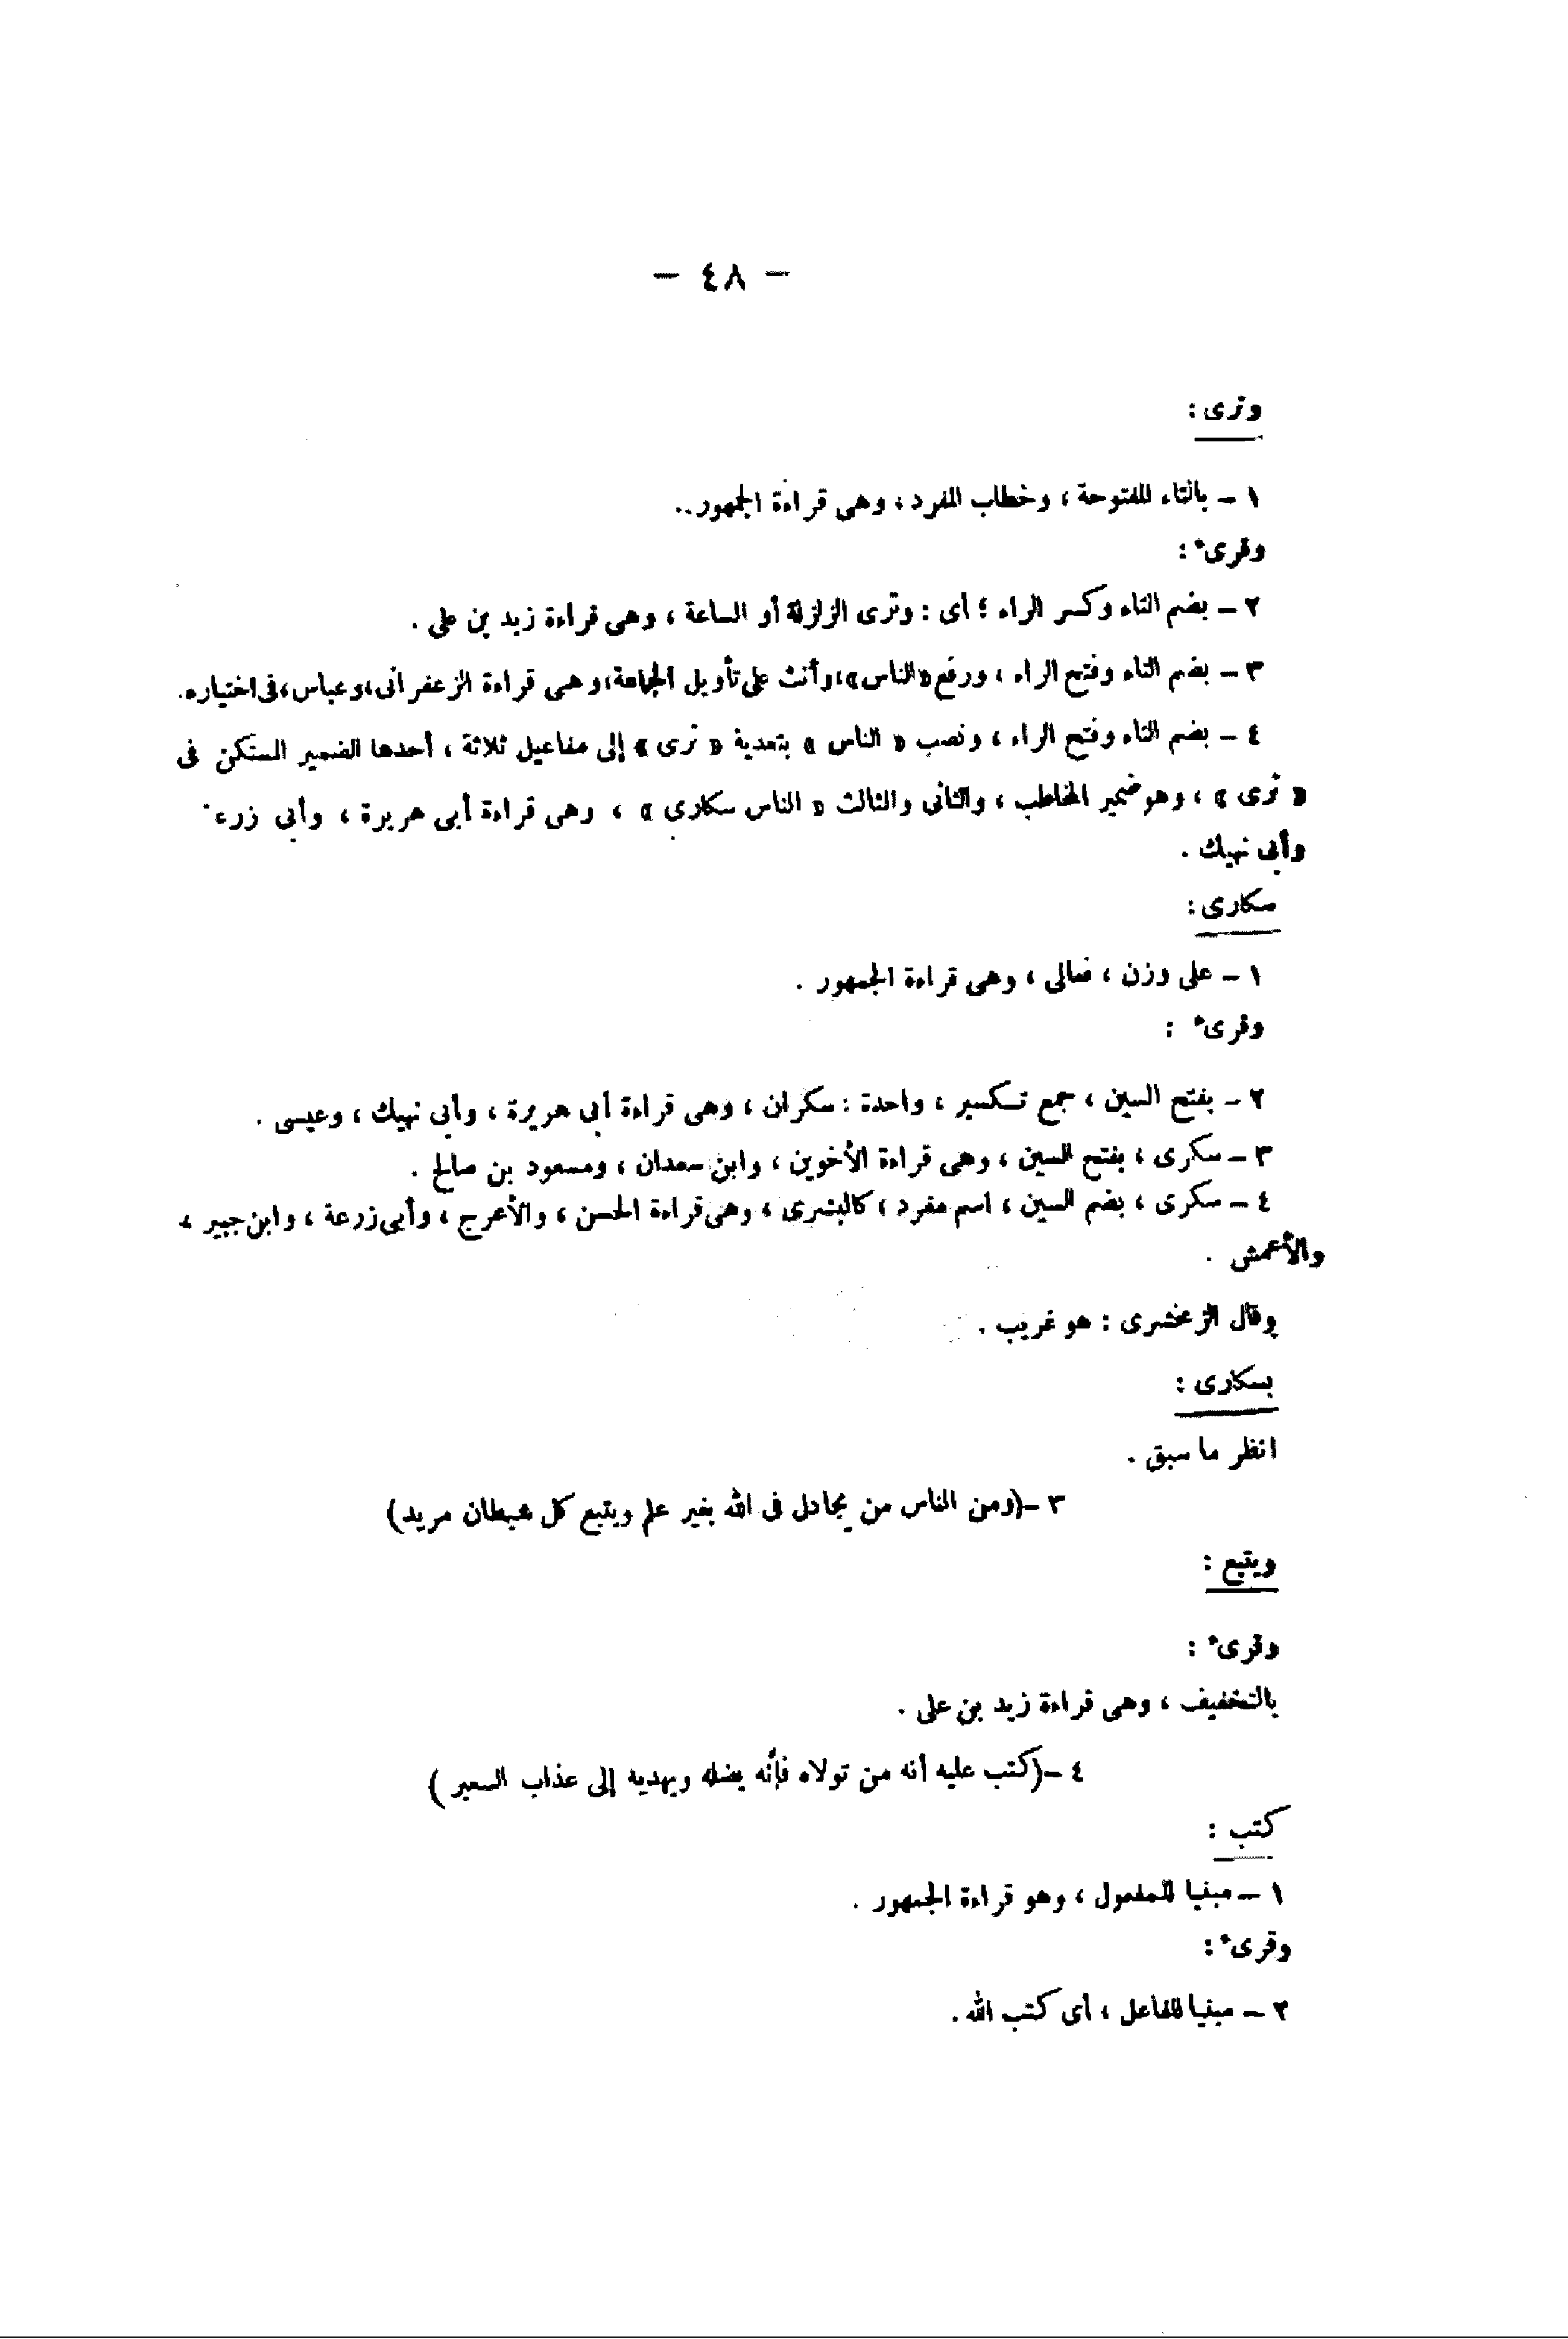 - ٤٨ -
وترى :
١ - بالتاء المفتوحة ، وخطاب المفرد ، وهى قراءة الجمهور..
وقرىء :
٢ - بضم التاء وكسر الراء ؛ أى : وترى الزلزلة أو الساعة ، وهى قراءة زيد بن على .
٣ - بضم التاء وفتح الراء ، ورفع «الناس»، وأنث على تأويل الجماعة، وهى قراءة الزعفرانى، وعباس، فى اختياره.
٤ - بضم التاء وفتح الراء ، ونصب « الناس » بتعدية « ترى » إلى مفاعيل ثلاثة ، أحدها الضمير المستكن فى
« ترى » ، وهو ضمير المخاطب ، والثانى والثالث « الناس سكارى » ، وهى قراءة أبى هريرة ، وأبى زرعة
وأبى نهيك .
سكارى :
١ - على وزن ، فعالى ، وهى قراءة الجمهور .
وقرىء :
٢ - بفتح السين ، جمع تكسير ، واحدة : سكران ، وهى قراءة أبى هريرة ، وأبى نهيك ، وعيسى .
٣ - سكرى ، بفتح السين ، وهى قراءة الأخوين ، وابن سعدان ، ومسعود بن صالح .
٤ - سكرى ، بضم السين ، اسم مفرد ، كالبشرى ، وهى قراءة الحسن ، والأعرج ، وأبى زرعة ، وابن جبير ،
والأعمش .
وقال الزمخشرى : هو غريب .
بسكارى :
انظر ما سبق .
٣ -(ومن الناس من يجادل فى الله بغير علم ويتبع كل شيطان مريد)
ويتبع :
وقرىء :
بالتخفيف ، وهى قراءة زيد بن على .
٤ -(كتب عليه أنه من تولاه فأنه يضله ويهديه إلى عذاب السعير )
كتب :
١ - مبنيا للمفعول ، وهو قراءة الجمهور .
وقرىء :
٢ - مبنيا للفاعل ، أى كتب الله .